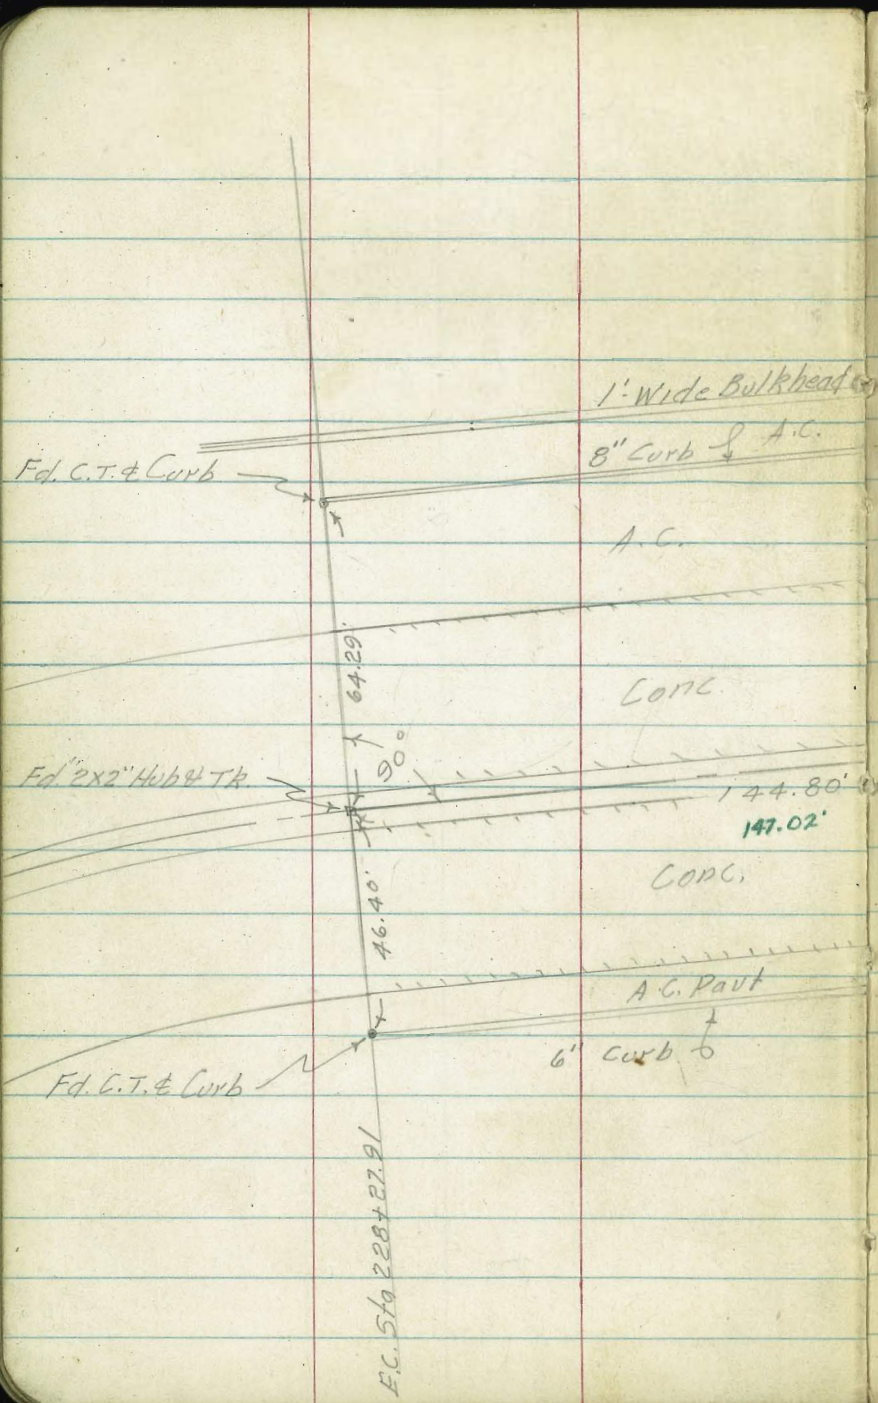 1'-Wide Bulkhead
8" Curb A.C.
Fd. C.T. & Curb
A.C.
64.29'
Conc.
90°
Fd. 2x2" Hub & Tk.
144.80'
147.02'
46.40'
Conc.
A.C. Pavt
6" Curb
Fd. C.T. & Curb
E.C. Sta 228+27.91